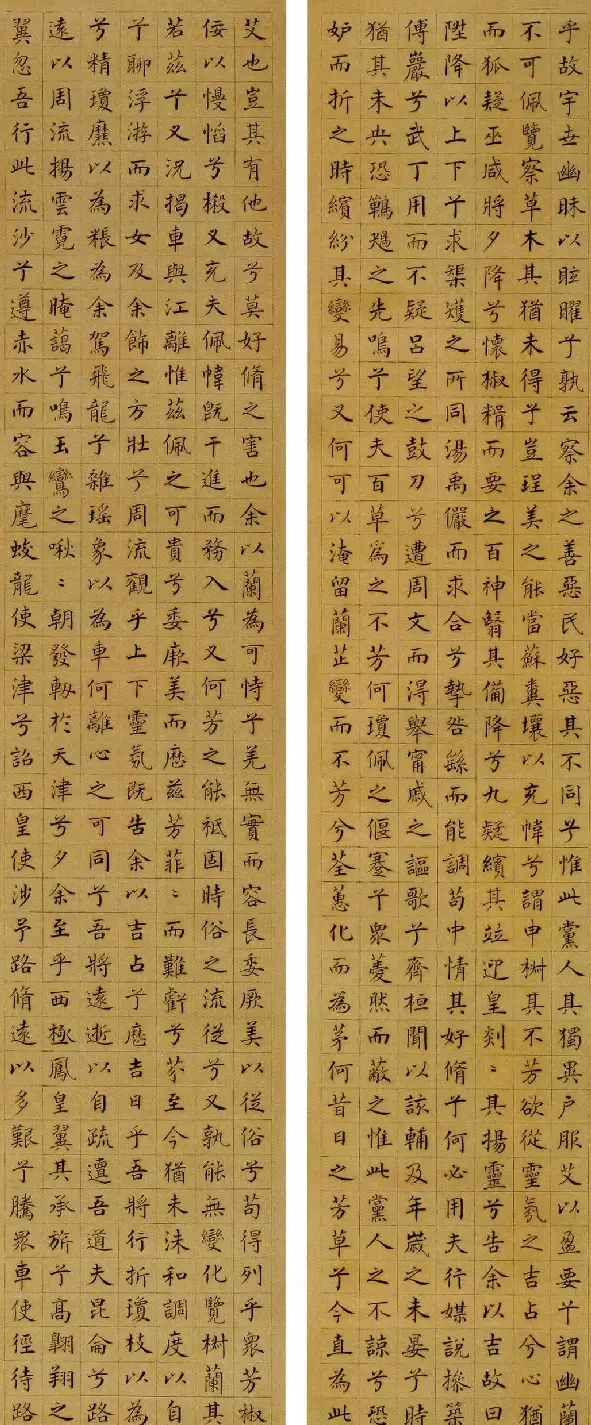 乎故宇世幽昧以眩曜兮孰云察余之善惡民好惡其不同兮惟此黨人其獨異戶服艾以盈要兮謂幽蘭
不可佩覽察草木其猶未得兮豈珵美之能當蘇糞壤以充幃兮謂申椒其不芳欲從靈氛之吉占兮心猶
而狐疑巫咸將夕降兮懷椒糈而要之百神翳其備降兮九疑繽其竝迎皇剡〻其揚靈兮告余以吉故曰
陞降以上下兮求榘矱之所同湯禹儼而求合兮摯咎繇而能調苟中情其好脩兮何必用夫行媒說操築
傅巖兮武丁用而不疑呂望之鼓刀兮遭周文而得舉甯戚之謳歌兮齊桓聞以該輔及年歲之未晏兮時
猶其未央恐鵜鴂之先鳴兮使夫百草為之不芳何瓊佩之偃蹇兮眾薆然而蔽之惟此黨人之不諒兮恐
妒而折之時繽紛其變易兮又何可以淹留蘭芷變而不芳兮荃蕙化而為茅何昔日之芳草兮今直為此
艾也豈其有他故兮莫好脩之害也余以蘭為可恃兮羌無實而容長委厥美以從俗兮苟得列乎眾芳椒
佞以慢慆兮樧又充夫佩幃既干進而務入兮又何芳之能祗固時俗之流從兮又孰能無變化覽椒蘭其
若茲兮又況揭車與江離惟茲佩之可貴兮委厥美而歷茲芳菲〻而難虧兮芬至今猶未沬和調度以自
兮聊浮游而求女及余飾之方壯兮周流觀乎上下靈氛既告余以吉占兮歷吉日乎吾將行折瓊枝以為
兮精瓊爢以為粻為余駕飛龍兮雜瑤象以為車何離心之可同兮吾將遠逝以自疏邅吾道夫昆侖兮路
遠以周流揚雲霓之晻藹兮鳴玉鸞之啾〻朝發軔於天津兮夕余至乎西極鳳皇翼其承旂兮高翱翔之
翼忽吾行此流沙兮遵赤水而容與麾蛟龍使梁津兮詔西皇使涉予路脩遠以多艱兮騰眾車使徑待路